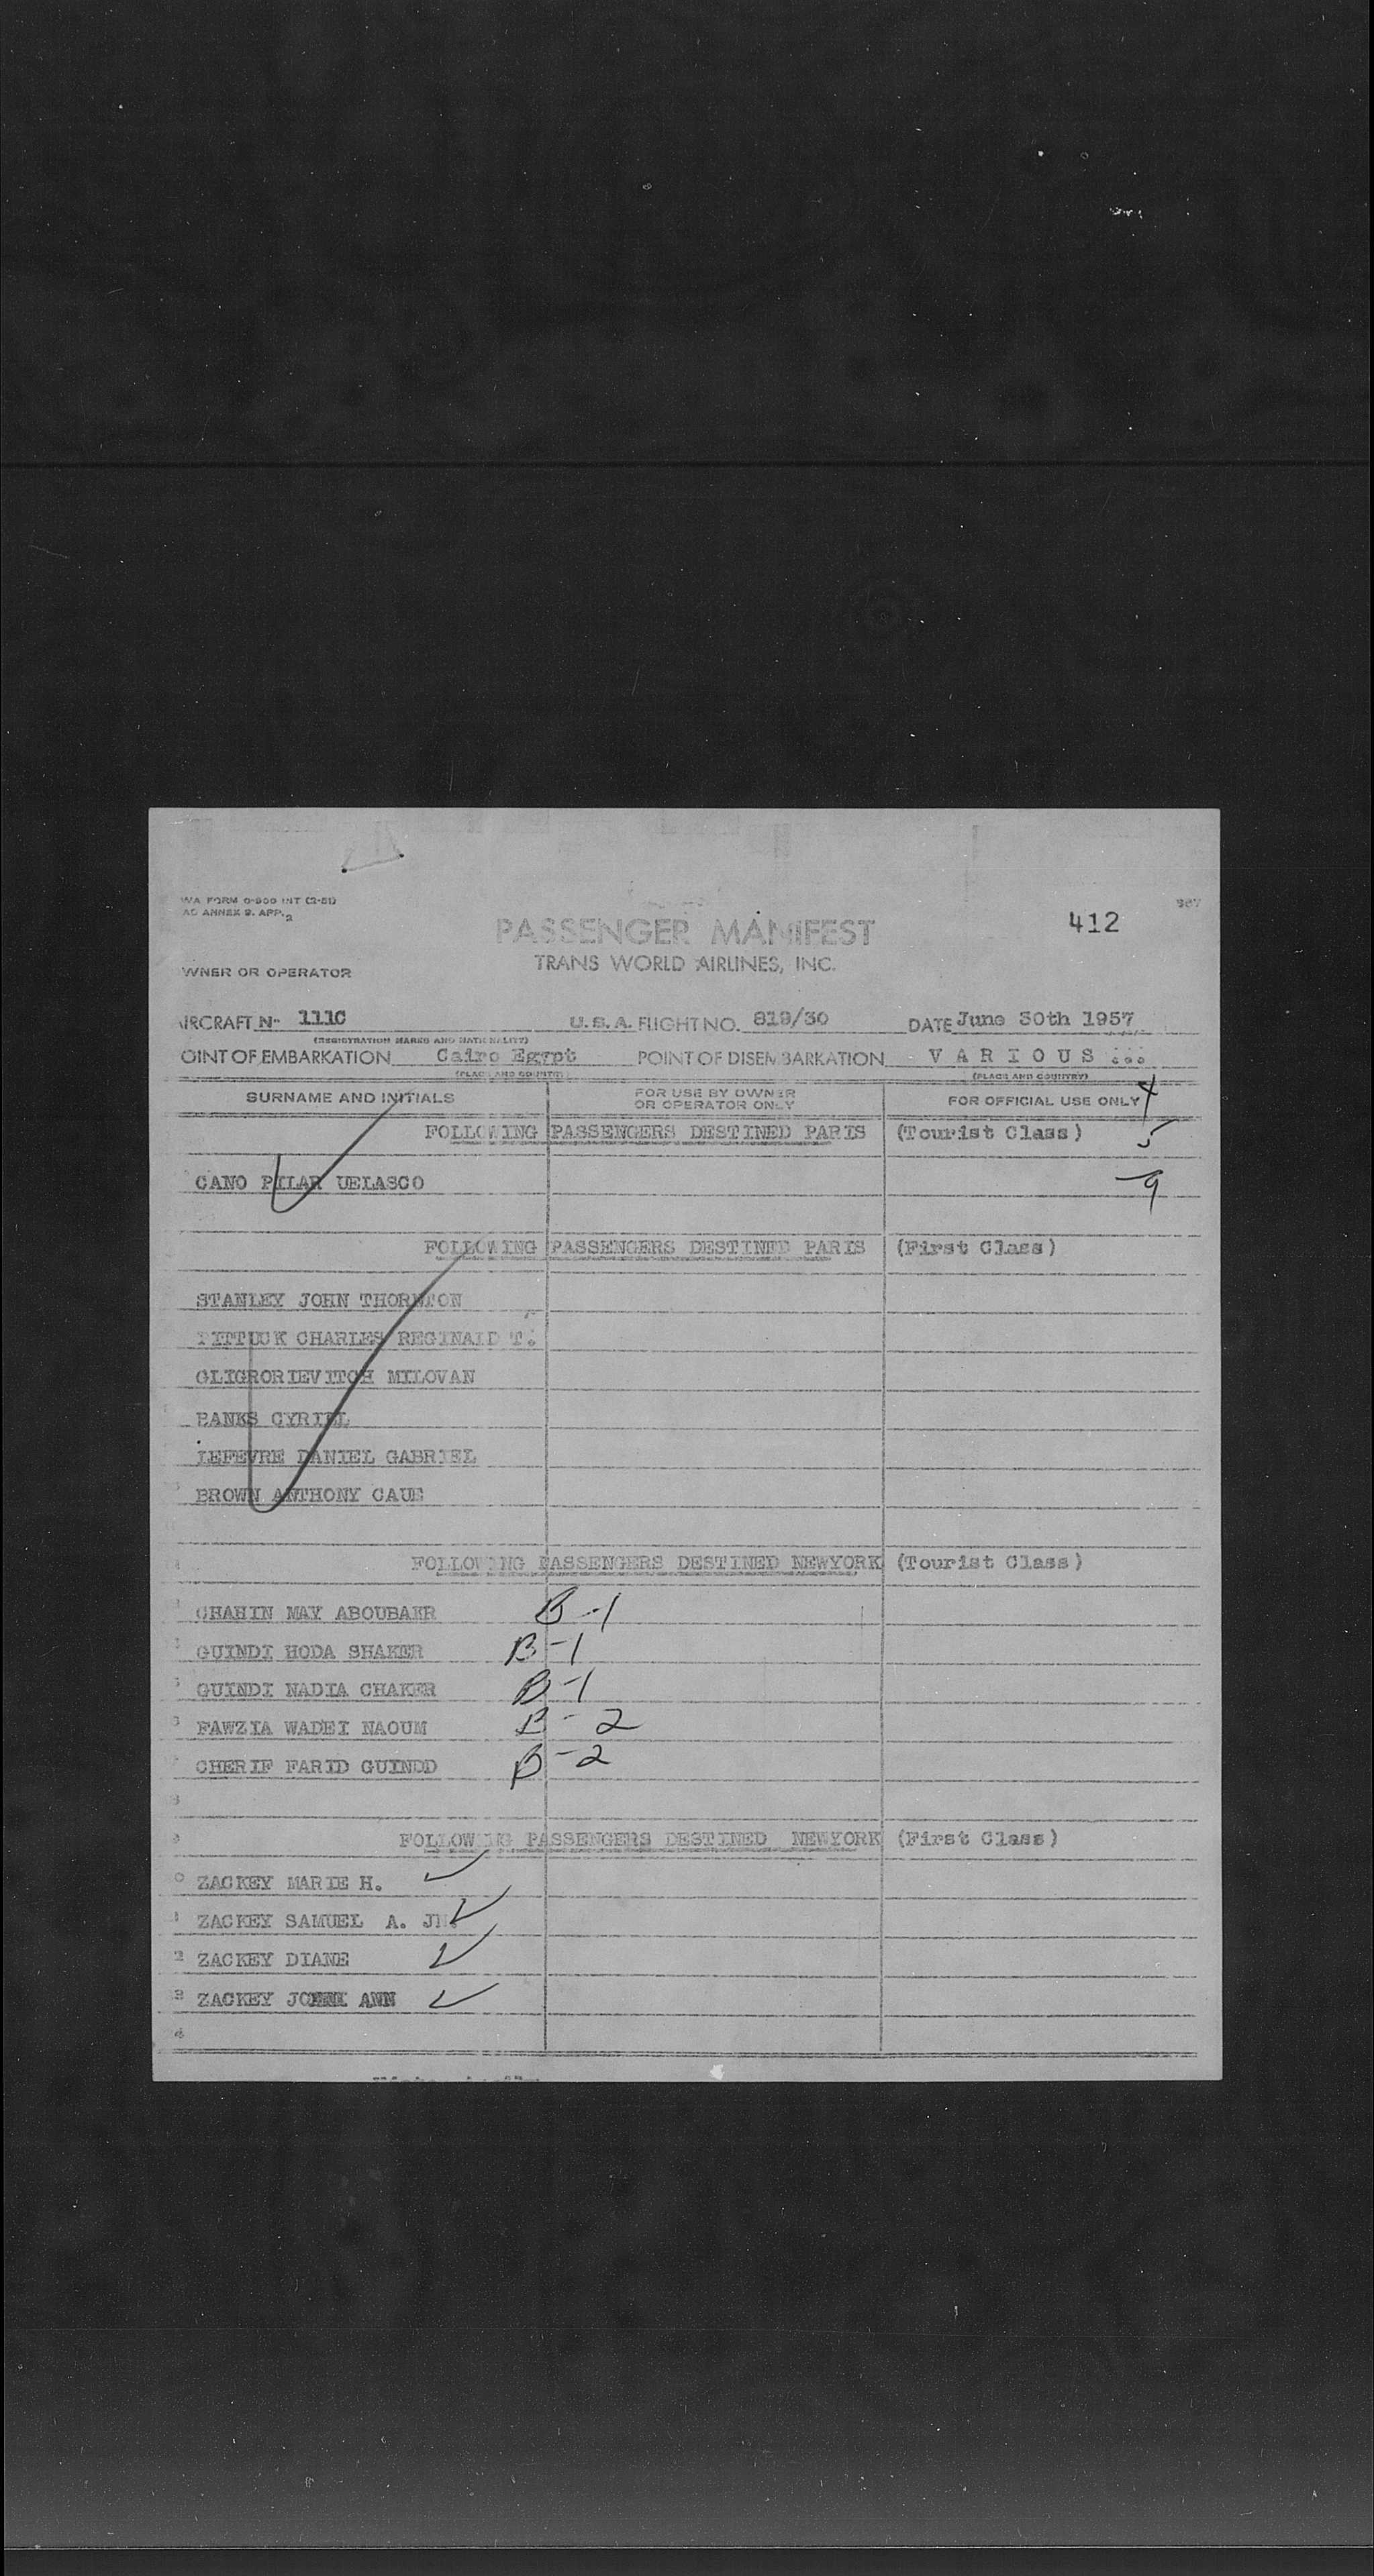 WA FORM 0-900 INT (2-51)
AO ANNEX 9. APP. 2
PASSENGER MANIFEST
412
TRANS WORLD AIRLINES, INC.
WNER OR OPERATOR
IRCRAFT N- 111C U.S.A. FLIGHT NO. 819/30 DATE June 30th 1957
(REGISTRATION MARKS AND NATIONALITY)
OINT OF EMBARKATION Cairo Egypt POINT OF DISEMBARKATION V A R I O U S ...
(PLACE AND COUNTRY) (PLACE AND COUNTRY)
SURNAME AND INITIALS FOR USE BY OWNER OR OPERATOR ONLY FOR OFFICIAL USE ONLY 4
FOLLOWING PASSENGERS DESTINED PARIS (Tourist Class) 5
CANO PILAR UELASCO 9
FOLLOWING PASSENGERS DESTINED PARIS (First Class)
STANLEY JOHN THORNTON
PITTUCK CHARLES REGINALD T.
GLIGRORIEVITCH MILOVAN
BANKS CYRILL
LEFEVRE DANIEL GABRIEL
BROWN ANTHONY CAUE
FOLLOWING PASSENGERS DESTINED NEWYORK (Tourist Class)
CHAHIN MAY ABOUBAKR B-1
GUINDI HODA SHAKER B-1
GUINDI NADIA CHAKER B-1
FAWZIA WADEI NAOUM B-2
CHERIF FARID GUINDD B-2
FOLLOWING PASSENGERS DESTINED NEWYORK (First Class)
ZACKEY MARIE H.
ZACKEY SAMUEL A. JR.
ZACKEY DIANE
ZACKEY ANN